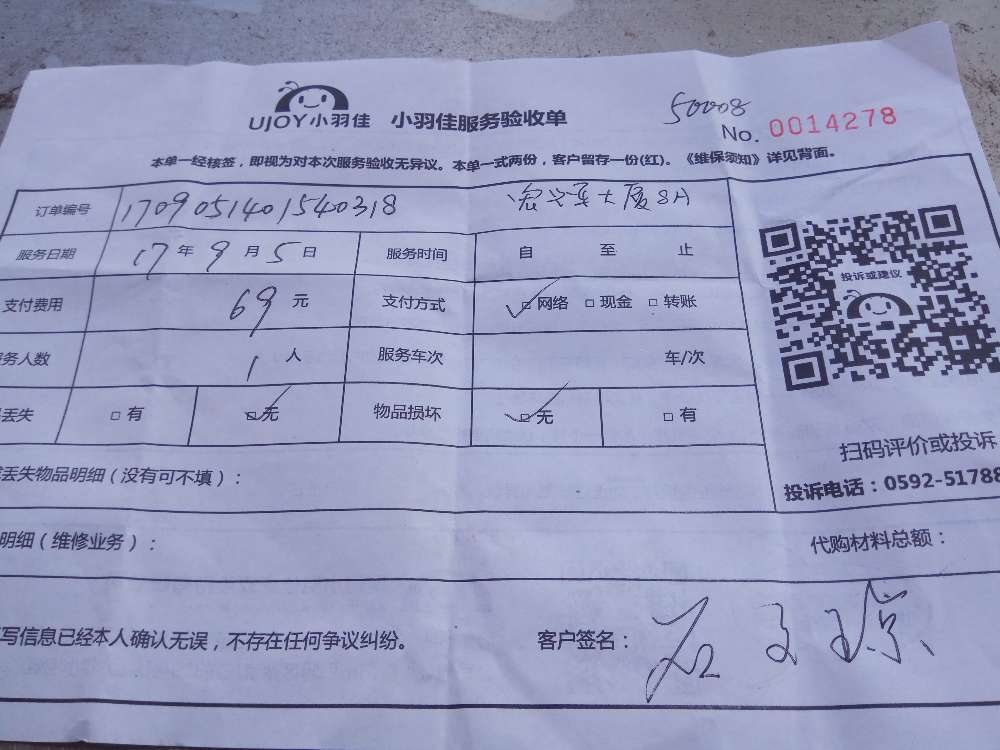 50008
UJOY小羽佳 小羽佳服务验收单
No. 0014278
本单一经核签，即视为对本次服务验收无异议。本单一式两份，客户留存一份(红)。《维保须知》详见背面。
订单编号 1709051401540318 大厦8A
服务日期 17年9月5日 服务时间 自 至 止
支付费用 69元 支付方式 □网络 □现金 □转账
务人数 1人 服务车次 车/次
丢失 □有 □无 物品损坏 □无 □有
投诉或建议
扫码评价或投诉
投诉电话：0592-51788
丢失物品明细（没有可不填）：
明细（维修业务）： 代购材料总额：
写信息已经本人确认无误，不存在任何争议纠纷。 客户签名：